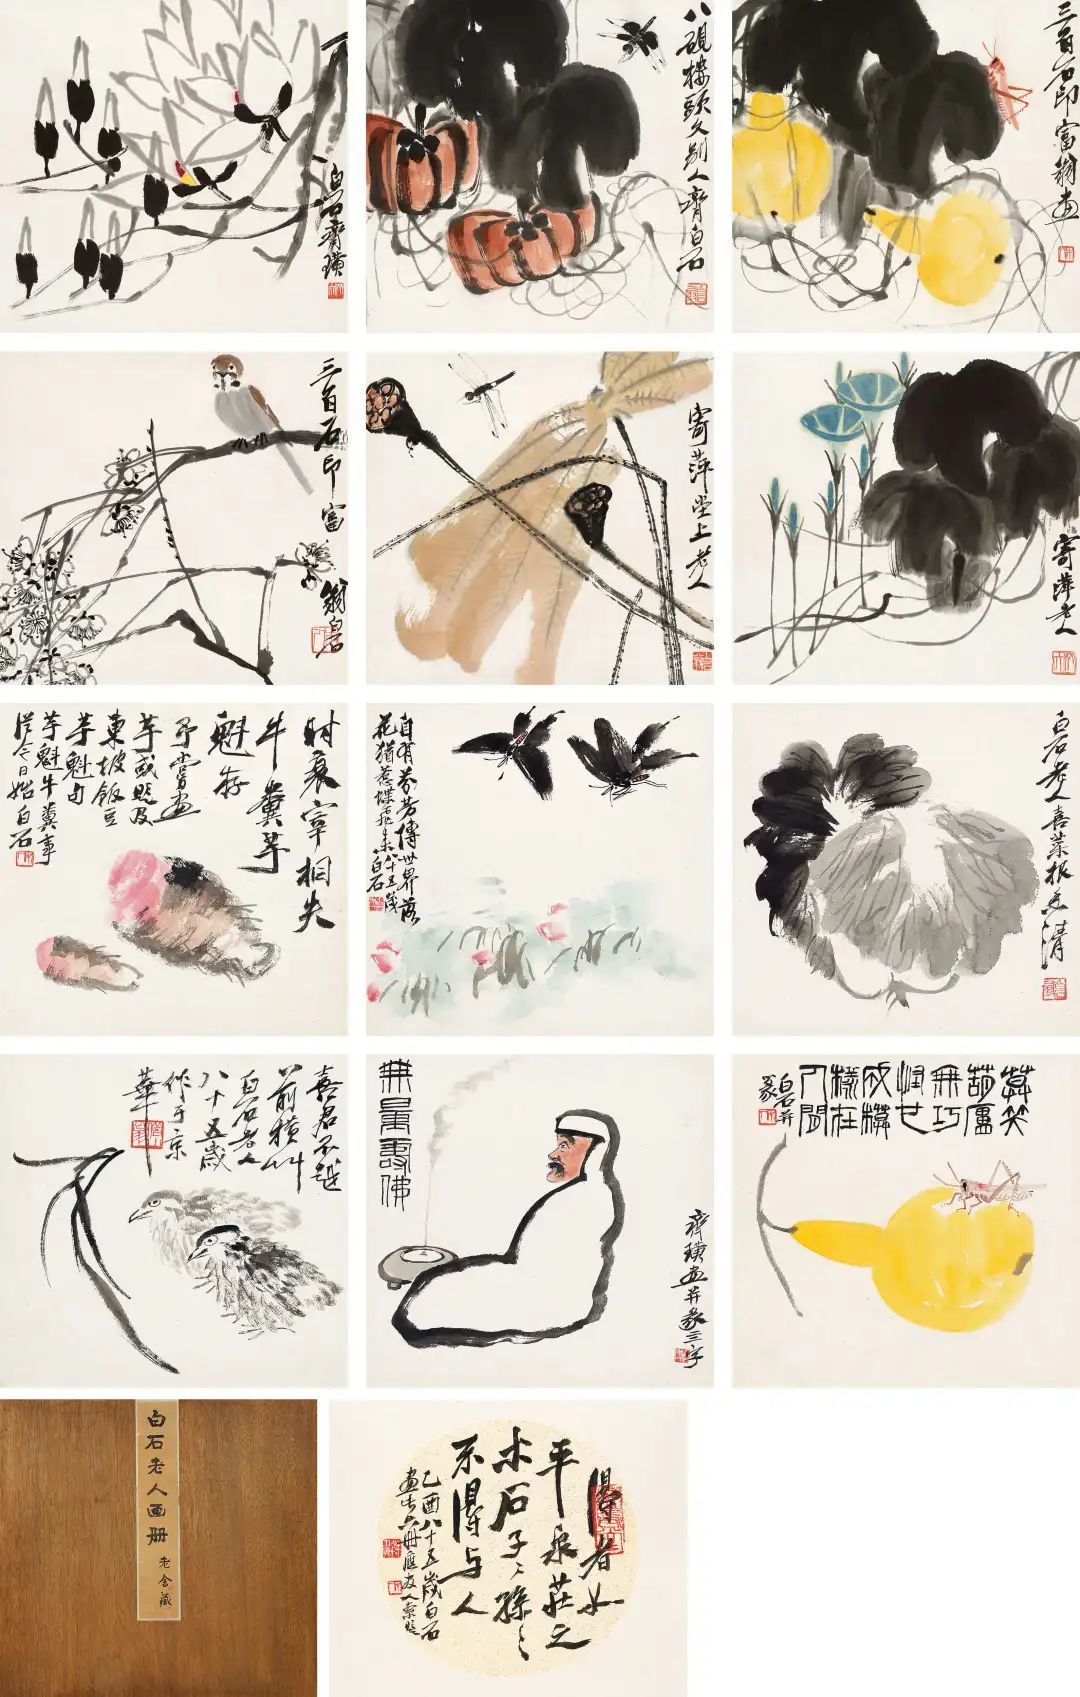 白石齊璜
八硯樓頭久别人齊白石
三百石印富翁畫
三百石印富
翁白石
寄萍堂上老人
寄萍老人
時衰宰相失
牛糞芋
魁存
予嘗畫
芋或題及
東坡飯豆
芋魁句
芋魁牛糞事
從今日始白石
自有芬芳傳世界落
花猶惹蝶飛來八十五歲
白石
白石老人喜菜根
清
喜君不越
前橫叫
白石老人
八十五歲
作于京
華
無量壽佛
齊璜畫并篆三字
葫蘆
無巧
成樣
人間
白石并
篆
白石老人画册
老舍藏
得者如
平泉莊之
木石子子孫孫
不得与人
乙酉八十五歲白石
画此六册應友人索題